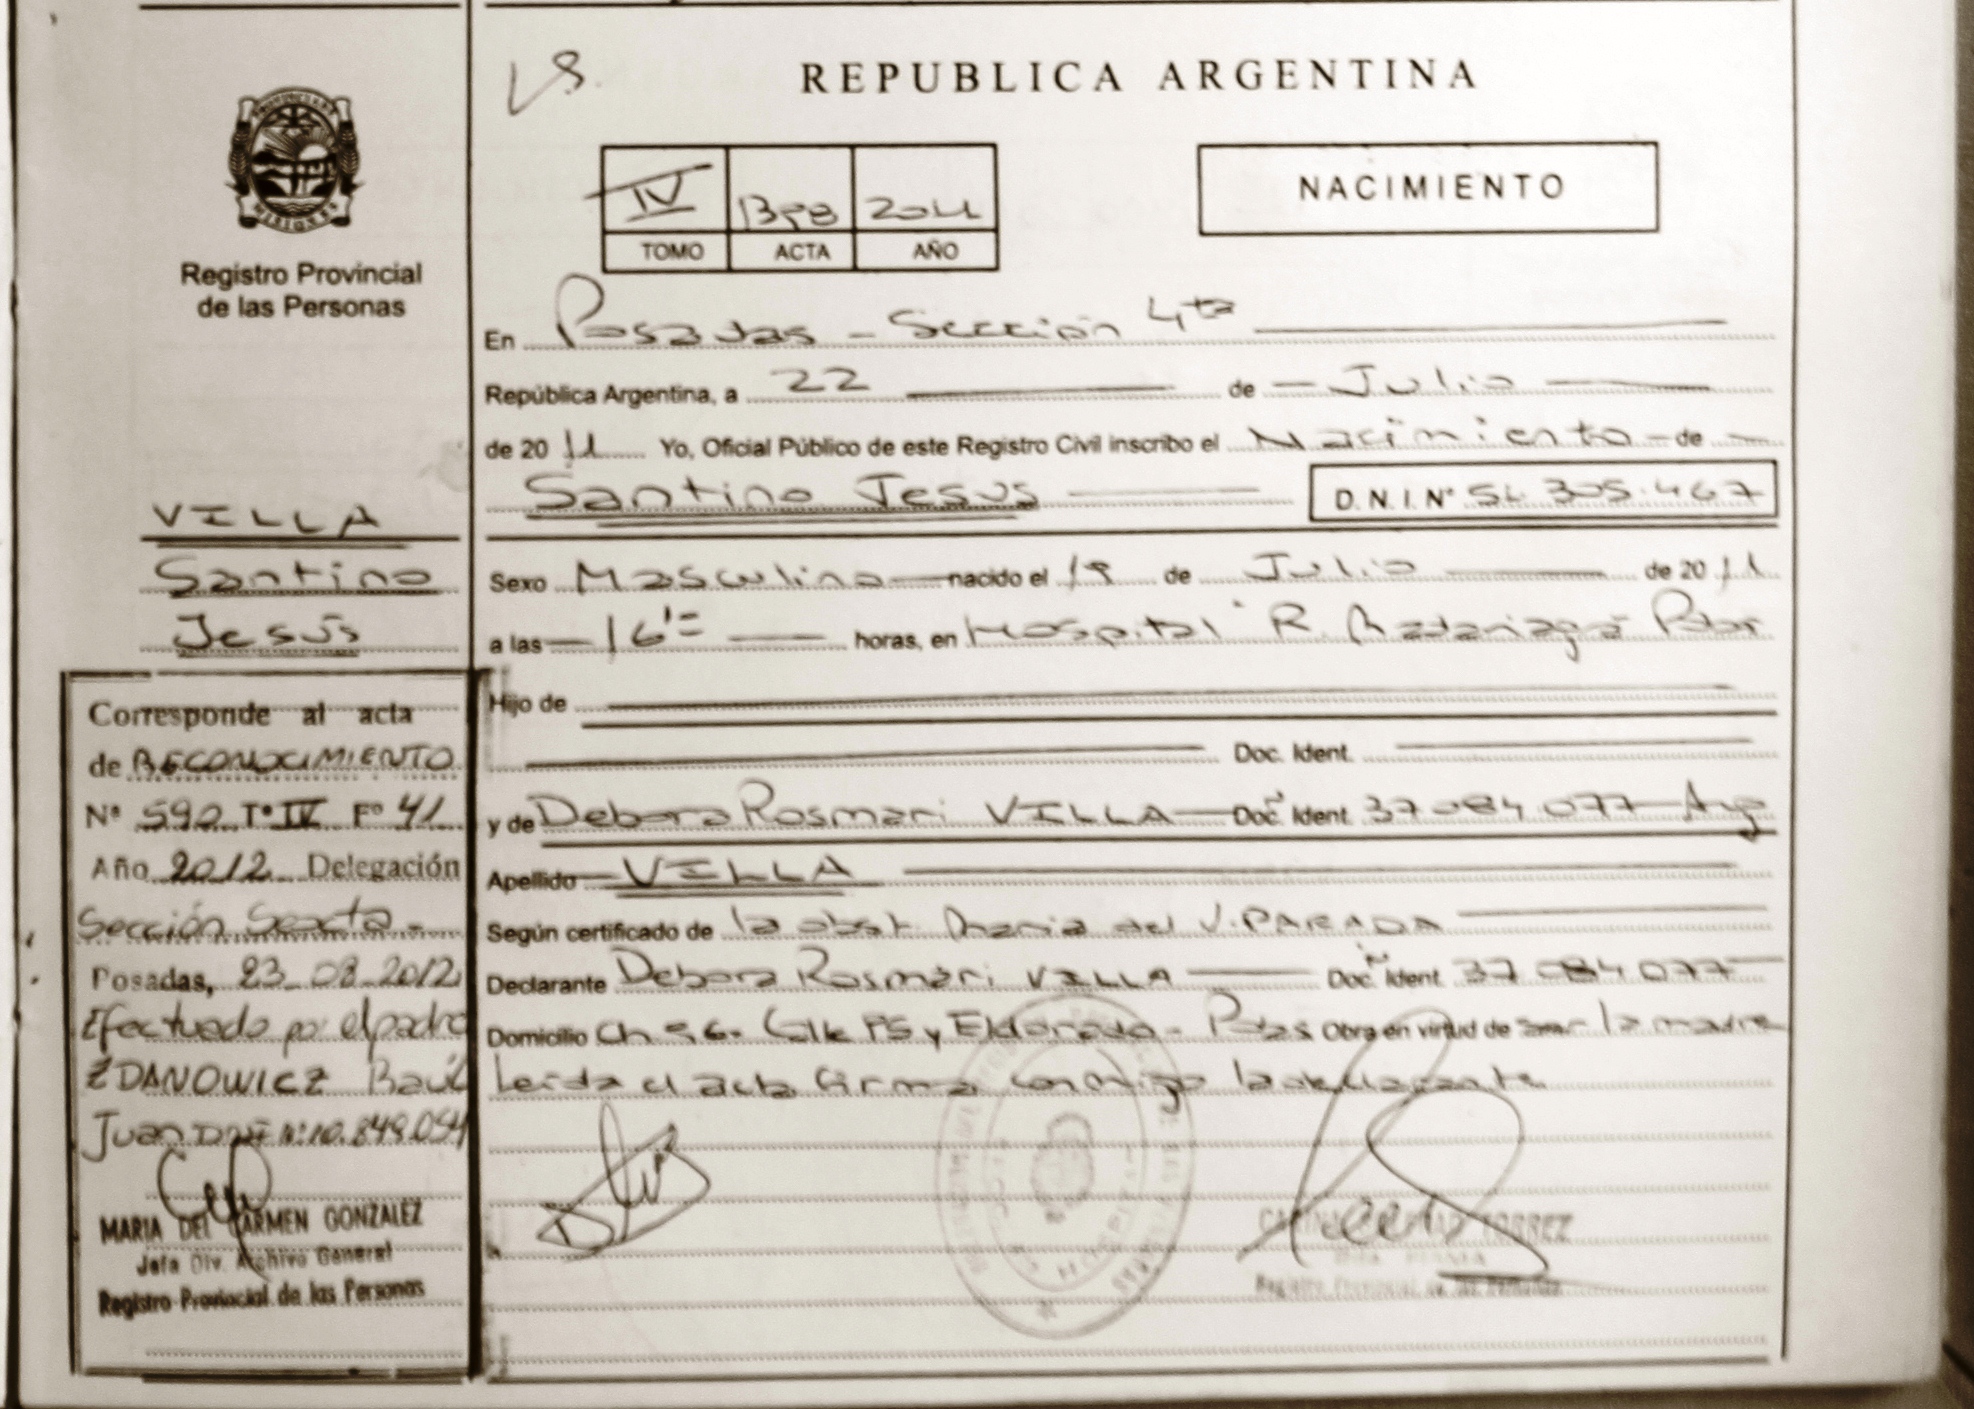 REPUBLICA ARGENTINA
NACIMIENTO
IV 2011
TOMO ACTA AÑO
Registro Provincial
de las Personas
En Posadas - Sección 4ta
República Argentina, a 22 de Julio
de 20 11 Yo, Oficial Público de este Registro Civil inscribo el Nacimiento de
Santino Jesús D.N.I. N° 51.305.467
VILLA
Santino
Jesús
Sexo Masculino nacido el 19 de Julio de 20 11
a las 16 horas, en Hospital R. Madariaga Pdas
Hijo de
Doc. Ident.
y de Debora Rosmari VILLA Doc. Ident. 37.084.077 Arg
Apellido VILLA
Según certificado de la obst. Maria del V. PARADA
Declarante Debora Rosmari VILLA Doc. Ident. 37.084.077
Domicilio Ch Calle y Eldorado - Pdas Obra en virtud de ser la madre
Leída el acta firma conmigo la declarante
Corresponde al acta
de RECONOCIMIENTO
N° 590 T° IV F° 41
Año 2012 Delegación
Sección Sexta -
Posadas, 23-08-2012
Efectuado por el padre
ZDANOWICZ Raúl
Juan DNI N° 10.849.054
MARIA DEL CARMEN GONZALEZ
Jefa Div. Archivo General
Registro Provincial de las Personas
TORREZ
Registro Provincial de las Personas